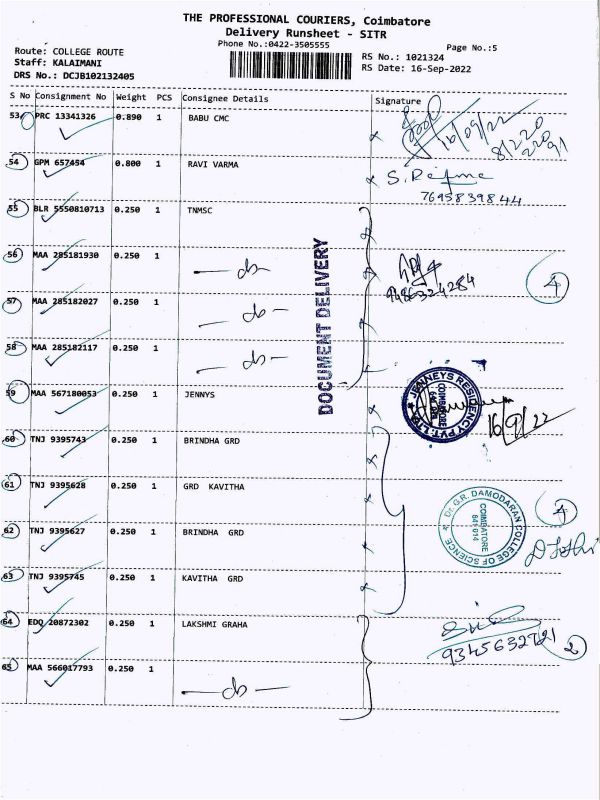 THE PROFESSIONAL COURIERS, Coimbatore
Delivery Runsheet - SITR
Phone No.:0422-3505555
Page No.:5
Route: COLLEGE ROUTE
RS No.: 1021324
Staff: KALAIMANI
RS Date: 16-Sep-2022
DRS No.: DCJB102132405
S No Consignment No Weight PCS Consignee Details Signature
53 PRC 13341326 0.890 1 BABU CMC
16/09/22
54 GPM 657454 0.800 1 RAVI VARMA
7695839844
55 BLR 5550810713 0.250 1 TNMSC
56 MAA 285181930 0.250 1 — do —
9486324284
4
57 MAA 285182027 0.250 1 — do —
58 MAA 285182117 0.250 1 — do —
DOCUMENT DELIVERY
59 MAA 567180053 0.250 1 JENNYS
JENNEYS RESIDENCY PVT. LTD
COIMBATORE
16/9/22
60 TNJ 9395743 0.250 1 BRINDHA GRD
61 TNJ 9395628 0.250 1 GRD KAVITHA
Dr. G.R. DAMODARAN COLLEGE OF SCIENCE
COIMBATORE
641 014
4
62 TNJ 9395627 0.250 1 BRINDHA GRD
63 TNJ 9395745 0.250 1 KAVITHA GRD
64 EDQ 20872302 0.250 1 LAKSHMI GRAHA
2
65 MAA 566017793 0.250 1 — do —